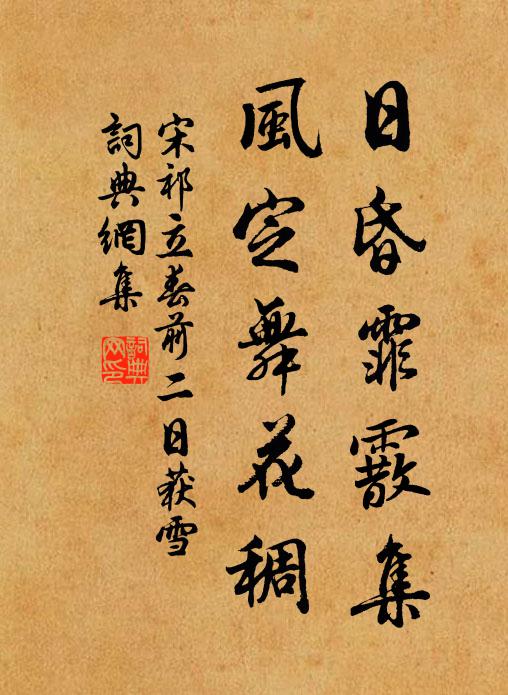 日昏霏霰集
風定舞花稠
宋祁立春前二日获雪
詞典網集
詞典网印